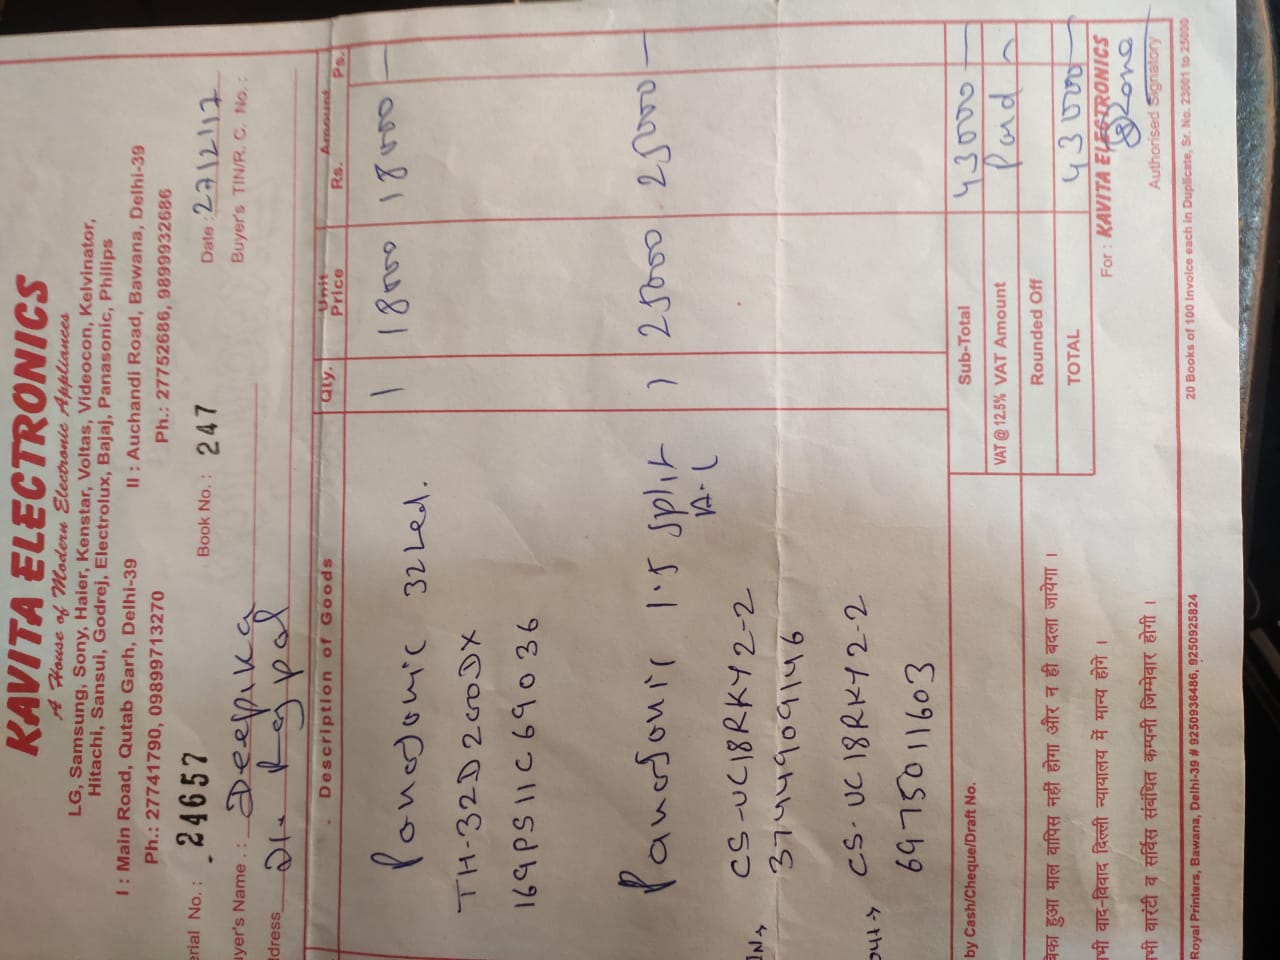 KAVITA ELECTRONICS
A House of Modern Electronic Appliances
LG, Samsung, Sony, Haier, Kenstar, Voltas, Videocon, Kelvinator,
Hitachi, Sansui, Godrej, Electrolux, Bajaj, Panasonic, Philips
I : Main Road, Qutab Garh, Delhi-39 II : Auchandi Road, Bawana, Delhi-39
Ph.: 27741790, 09899713270 Ph.: 27752686, 9899932686
erial No.: 24657 Book No.: 247 Date: 27/2/17
uyer's Name.: Deepika Buyer's TIN/R. C. No.:
ddress D/o Rajpal
Description of Goods Qty. Unit Price Rs. Amount Ps.
Panasonic 32 Led. 1 18000 18000 —
TH-32D200DX
169PS11C69036
Panasonic 1.5 split A.C 1 25000 25000 —
IN→ CS-UC18RKY2-2
3744909146
out→ CS-UC18RKY2-2
6975011603
by Cash/Cheque/Draft No. Sub-Total 43000 —
VAT @ 12.5% VAT Amount Paid
Rounded Off
TOTAL 43000 —
बिका हुआ माल वापिस नहीं होगा और न ही बदला जायेगा।
भी वाद-विवाद दिल्ली न्यायालय में मान्य होंगे।
भी वारंटी व सर्विस संबंधित कम्पनी जिम्मेवार होगी।
For : KAVITA ELECTRONICS
Authorised Signatory
Royal Printers, Bawana, Delhi-39 # 9250936486, 9250925824 20 Books of 100 Invoice each in Duplicate, Sr. No. 23001 to 25000